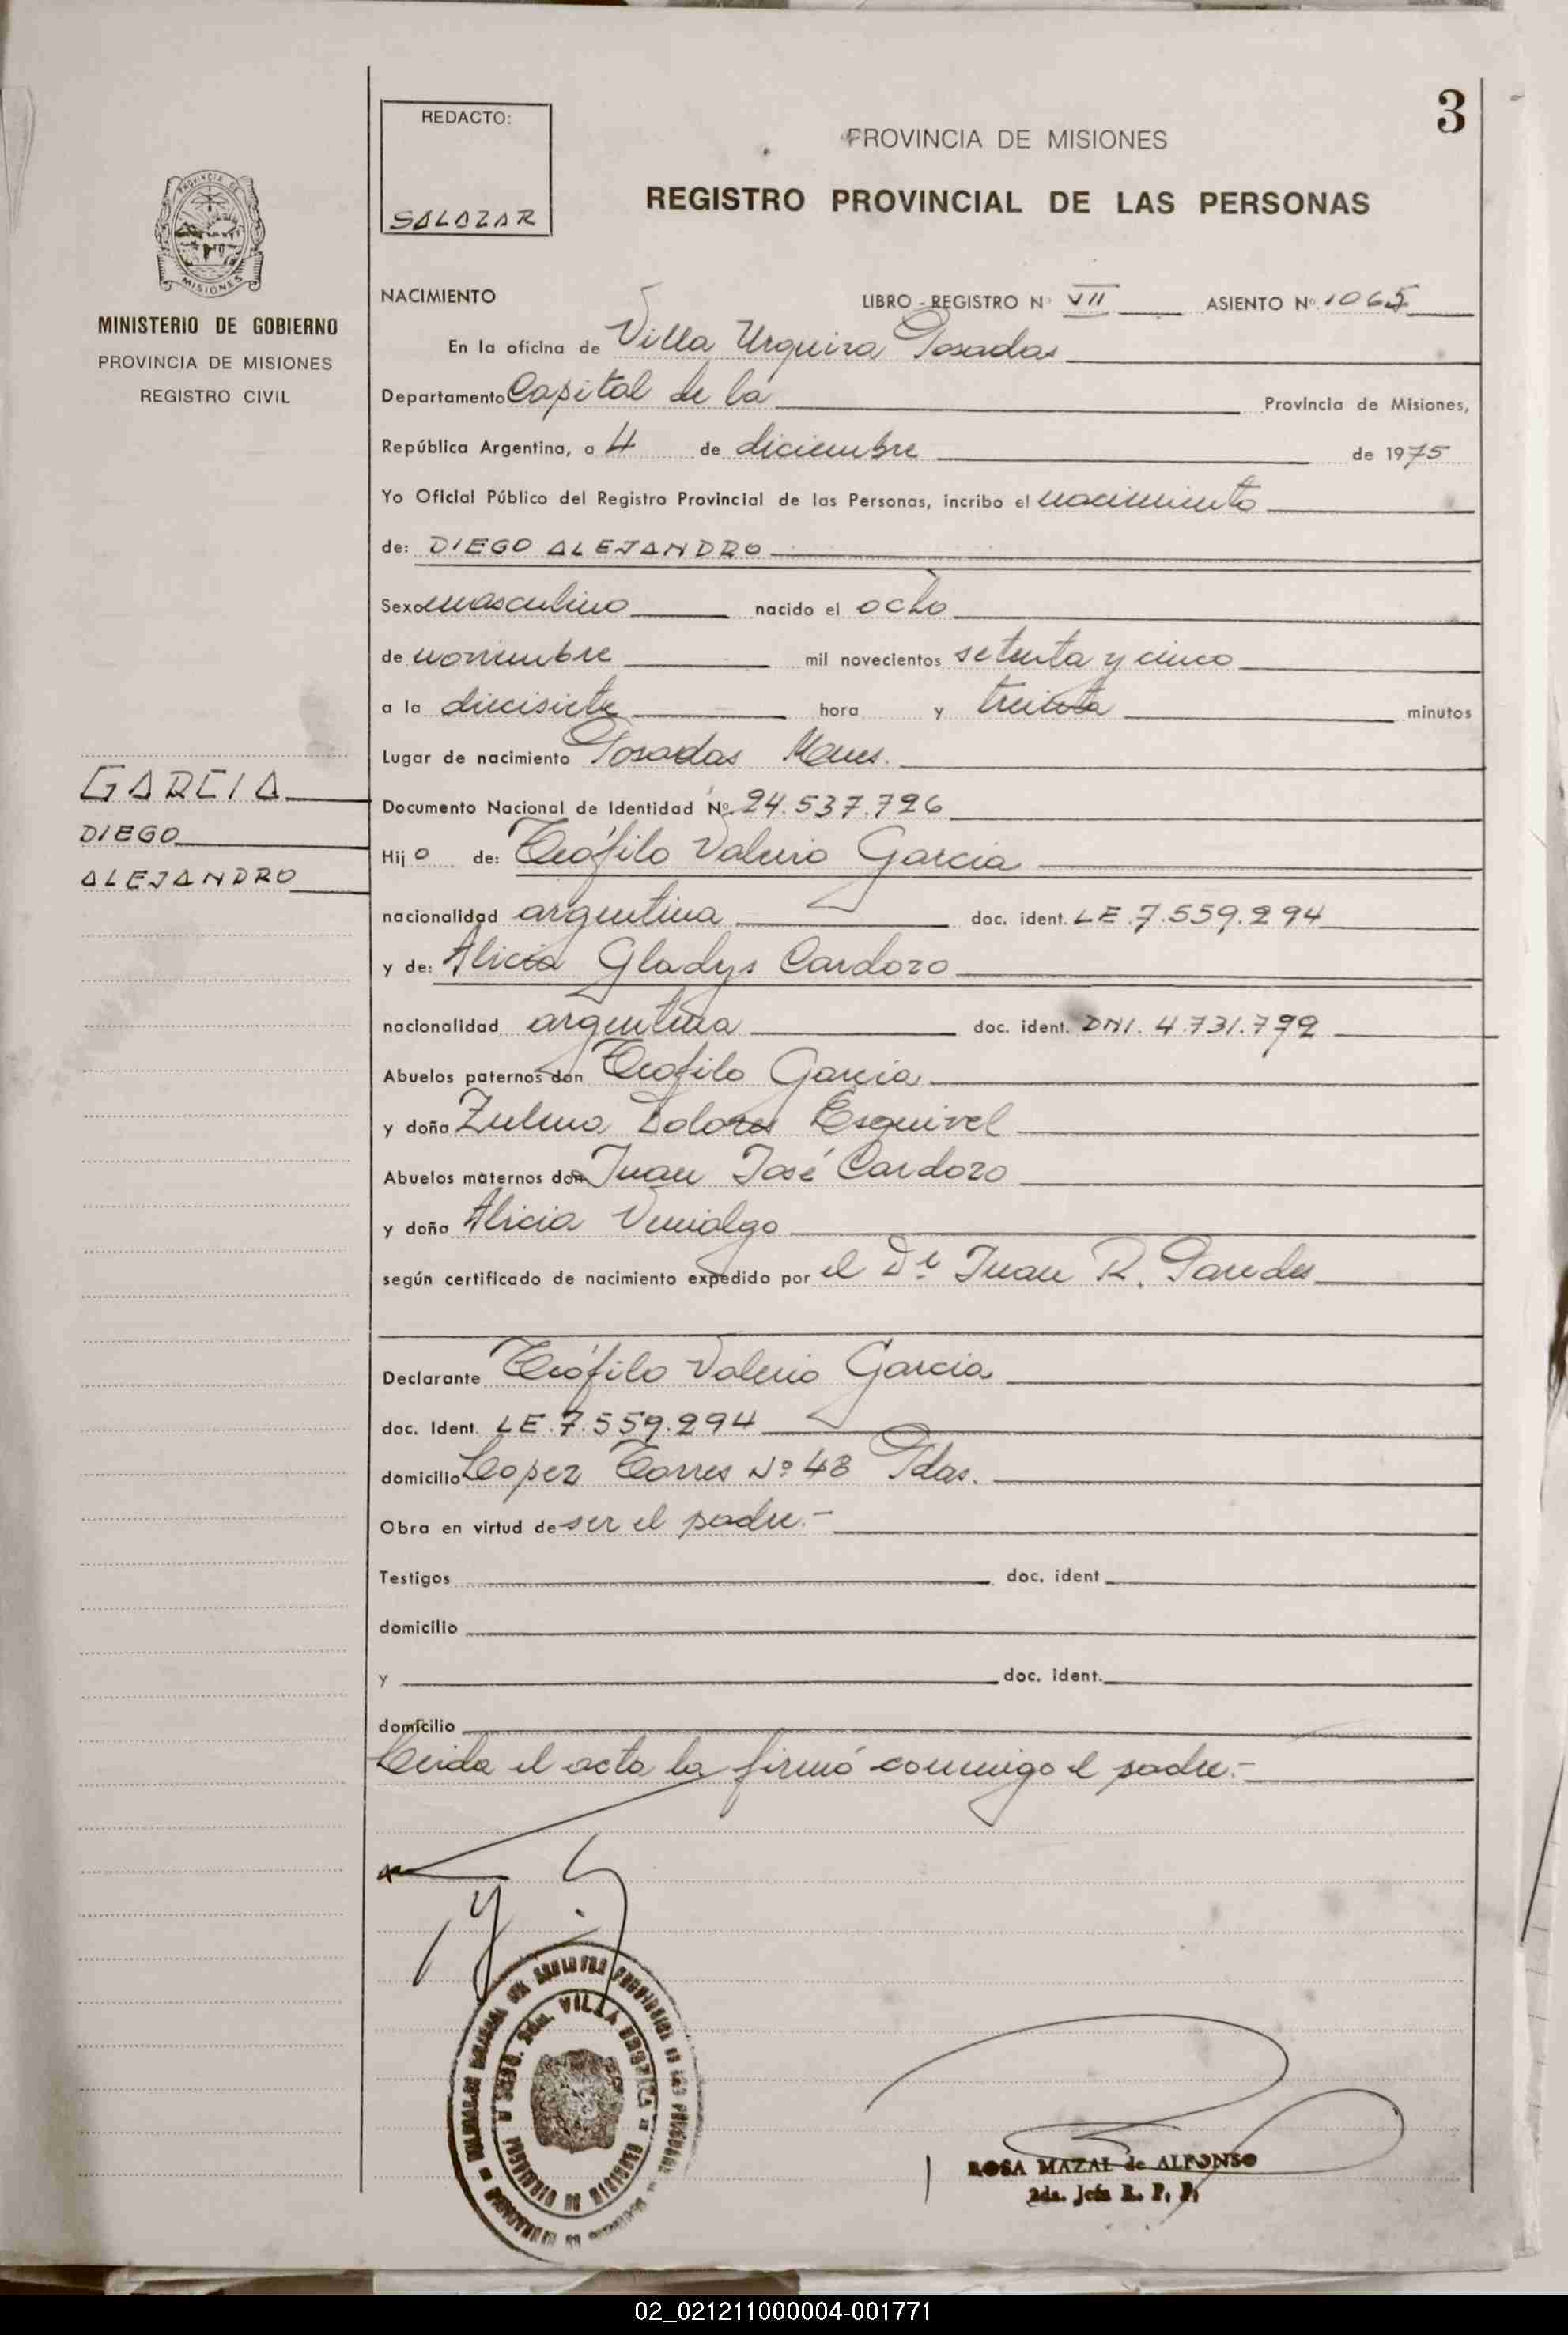 3
REDACTO:
SALAZAR
PROVINCIA DE MISIONES
REGISTRO PROVINCIAL DE LAS PERSONAS
PROVINCIA DE
MISIONES
MINISTERIO DE GOBIERNO
PROVINCIA DE MISIONES
REGISTRO CIVIL
NACIMIENTO LIBRO - REGISTRO Nº VII ASIENTO Nº 1065
En la oficina de Villa Urquiza Posadas
Departamento Capital de la Provincia de Misiones,
República Argentina, a 4 de diciembre de 1975
Yo Oficial Público del Registro Provincial de las Personas, incribo el nacimiento
de: DIEGO ALEJANDRO
Sexo masculino nacido el ocho
de noviembre mil novecientos setenta y cinco
a la diecisiete hora y treinta minutos
Lugar de nacimiento Posadas Mnes.
GARCIA
DIEGO
ALEJANDRO
Documento Nacional de Identidad Nº 24.537.726
Hijo de: Teófilo Valerio Garcia
nacionalidad argentina doc. ident. LE.7.559.294
y de: Alicia Gladys Cardozo
nacionalidad argentina doc. ident. DNI. 4.731.792
Abuelos paternos don Teofilo Garcia
y doña Zulma Dolores Esquivel
Abuelos maternos don Juan José Cardozo
y doña Alicia Venialgo
según certificado de nacimiento expedido por el Dr Juan R. Paredes
Declarante Teófilo Valerio Garcia
doc. Ident. LE.7.559.294
domicilio Lopez Torres Nº 48 Pdas.
Obra en virtud de ser el padre.-
Testigos doc. ident
domicilio
y doc. ident.
domicilio
Leida el acta la firmó conmigo el padre.-
VILLA URQUIZA
PROVINCIA DE MISIONES
ROSA MAZAL de ALFONSO
2da. Jefa R. P. P.
02_021211000004-001771